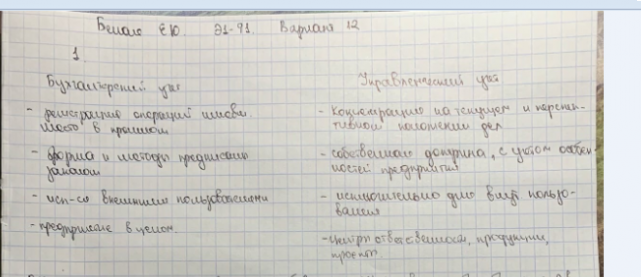 Белаго Е.Ю. Э1-91. Вариант 12
1.
Бухгалтерский учет
- регистрация операций имевш.
место в прошлом
- форма и методы предписаны
законом
- исп-ся внешними пользователями
- предприятие в целом
Управленческий учет
- концентрация на текущем и перспек-
тивном положении дел
- собственного допущена, с учетом особен
ностей предприятия
- исключительно для внутр пользо-
вания
- центр ответственности, продукции,
проект.